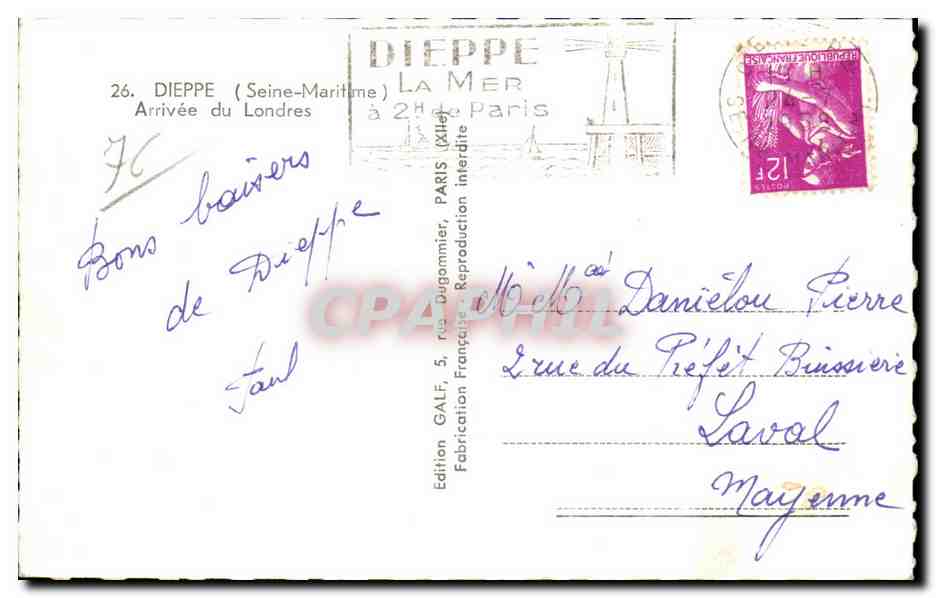 26. DIEPPE (Seine-Maritime)
Arrivée du Londres
DIEPPE
LA MER
à 2H de Paris
REPUBLIQUE FRANÇAISE
12F
POSTES
76
Bons baisers
de Dieppe
Paul
Edition GALF, 5, rue Dugommier, PARIS (XIIe)
Fabrication Française - Reproduction interdite
CPAPHIL
Daniélou Pierre
2 rue du Préfét Buissiere
Laval
Mayenne